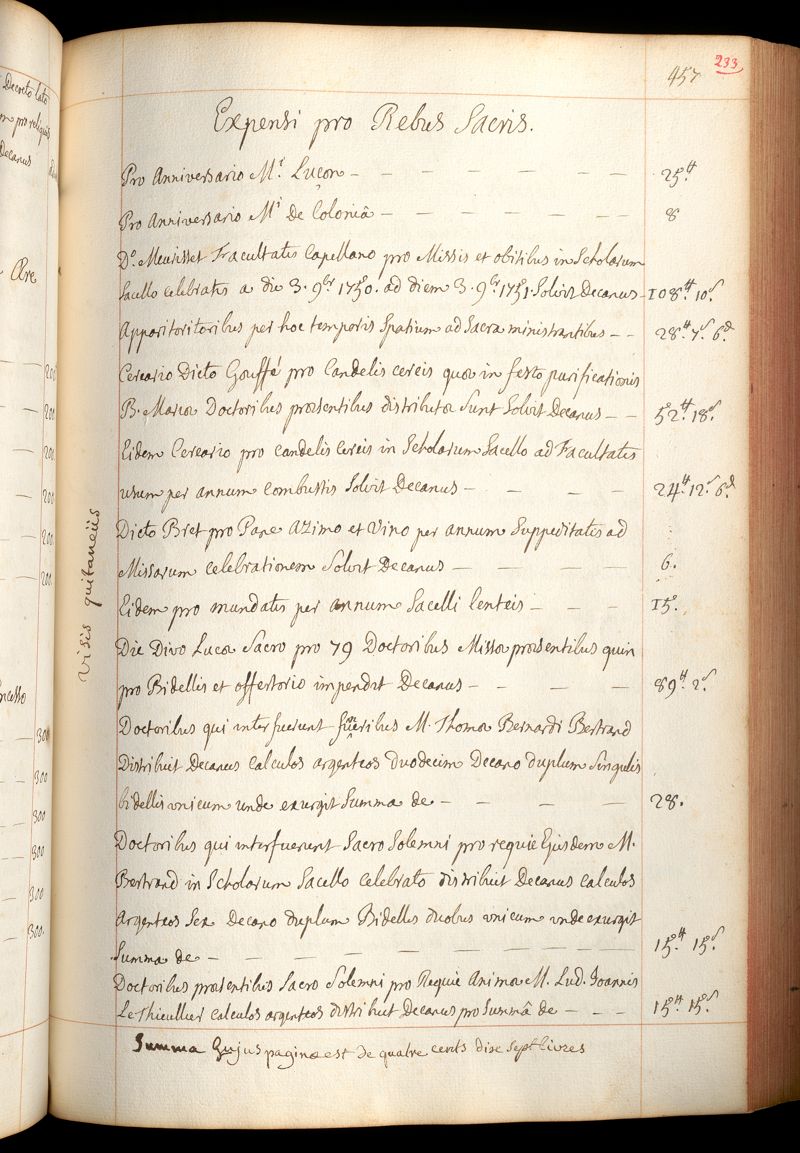 Decreto lato
m pro reliquis
Decanus
Ære
200
200
200
200
200
200
300
300
300
300
300
300.
457
233
Expensi pro Rebus Sacris.
Pro Anniversario M.r Luçon — — — — — — — 25.tt
Pro Anniversario M.i De Coloniâ — — — — — — — 8
D.o Meurisset Facultatis Capellano pro Missis et obitibus in Scholarum
Sacello celebratis a die 3. 9.br 1750. ad diem 3. 9.br 1751. Solvit Decanus — 108.tt 10.s
Apparitoritoribus per hoc temporis Spatium ad Sacra ministrantibus — — 28.tt 7.s 6.d
Cereario Dicto Gouffé pro Candelis cereis quæ in festo purificationis
B. Mariæ Doctoribus præsentibus distributæ Sunt Solvit Decanus — — 52.tt 18.s
Eidem Cereario pro candelis cereis in Scholarum Sacello ad Facultatis
usum per annum combustis Solvit Decanus — — — — 24.tt 12.s 6.d
Dicto Bret pro Pane azimo et Vino per annum Suppeditatis ad
Missarum celebrationem Solvit Decanus — — — — 6.
Eidem pro mundatis per annum Sacelli lenteis — — — 15.
Die Divo Lucæ Sacro pro 79 Doctoribus Missæ præsentibus quin
pro Bidellis et offertorio impendit Decanus — — — — 89.tt 2.s
Doctoribus qui interfuerunt funeribus M. Thomæ Bernardi Bertrand
Distribuit Decanus Calculos argenteos duodecim Decano duplum Singulis
bidellis unicum unde exurgit Summa de — — — — 28.
Doctoribus qui interfuerunt Sacro Solemni pro requie Ejusdem M.
Bertrand in Scholarum Sacello celebrato distribuit Decanus calculos
argenteos Sex Decano duplum Bidellis duobus unicum unde exurgit
Summa de — — — — — — — — 15.tt 15.s
Doctoribus præsentibus Sacro Solemni pro Requie Animæ M. Lud. Joannis
Le Thieullier calculos argenteos distribuit Decanus pro Summâ de — — — 15.tt 15.s
Summa hujus paginæ est de quatre cents dixe Sept livres
Visis quitanciis